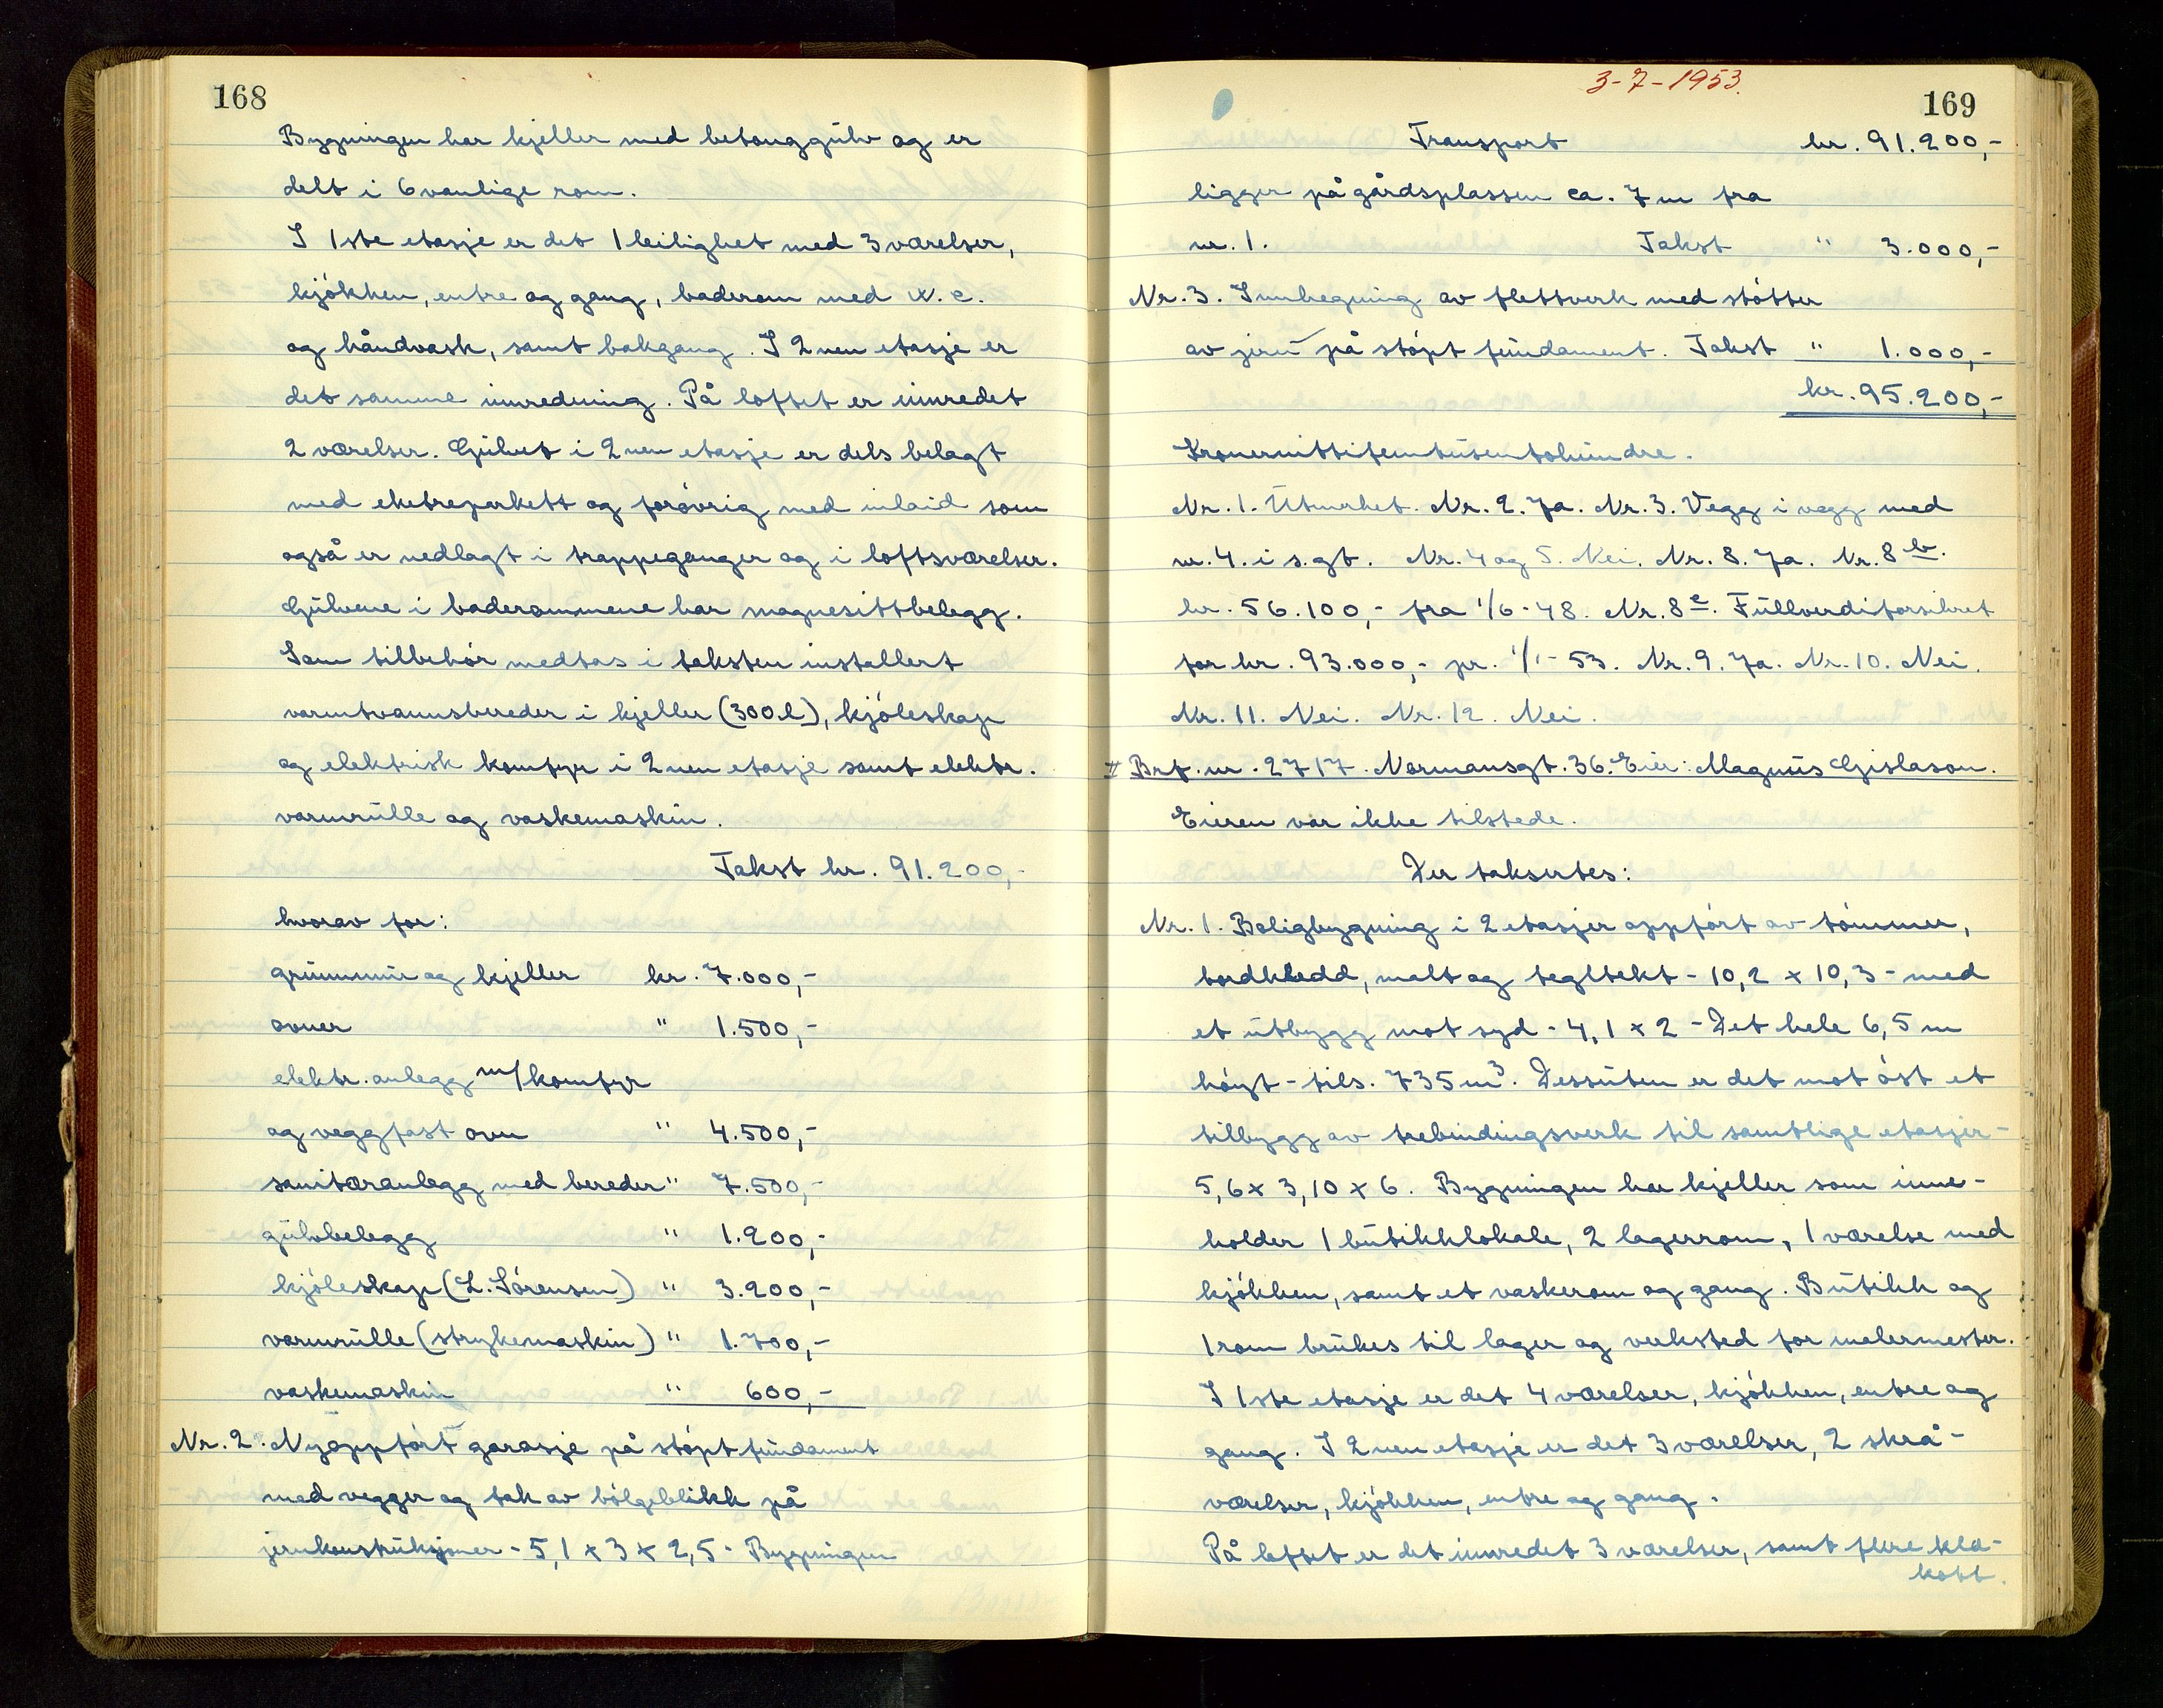 168
Bygningen har kjeller med betonggulv og er
delt i 6 vanlige rom.
I 1ste etasje er det 1 leilighet med 3 værelser,
kjøkken, entre og gang, baderom med w.c.
og håndvask, samt bakgang. I 2nen etasje er
det samme innredning. På loftet er innredet
2 værelser. Gulvet i 2nen etasje er dels belagt
med eketreparkett og forøvrig med inlaid som
også er nedlagt i trappeganger og i loftsværelser.
Gulvene i baderommene har magnesittbelegg.
Som tilbehør medtas i taksten installert
varmtvannsbereder i kjeller (300 l), kjøleskap
og elektrisk komfyr i 2nen etasje samt elektr.
varmrulle og vaskemaskin.
Takst kr. 91.200,-
hvorav for:
grunnmur og kjeller kr. 7.000,-
ovner " 1.500,-
elektr. anlegg m/komfyr
og veggfast ovn " 4.500,-
sanitæranlegg med bereder " 7.500,-
gulvbelegg " 1.200,-
kjøleskap (L. Sørensen) " 3.200,-
varmrulle (strykemaskin) " 1.700,-
vaskemaskin " 600,-
Nr. 2. Nyoppført garasje på støpt fundament
med vegger og tak av bølgeblikk på
jernkonstruksjoner - 5,1 x 3 x 2,5 - Bygningen
3-7-1953.
169
Transport kr. 91.200,-
ligger på gårdsplassen ca. 7 m fra
nr. 1. Takst " 3.000,-
Nr. 3. Innhegning av flettverk med støtter
av jern på støpt fundament. Takst " 1.000,-
kr. 95.200,-
Kronernittifemtusentohundre.
Nr. 1. Utmerket. Nr. 2. Ja. Nr. 3. Vegg i vegg med
nr. 4. i s. gt. Nr. 4 og 5. Nei. Nr. 8. Ja. Nr. 8 b.
kr. 56.100,- fra 1/6-48. Nr. 8 c. Fullverdiforsikret
for kr. 93.000,- pr. 1/1-53. Nr. 9. Ja. Nr. 10. Nei.
Nr. 11. Nei. Nr. 12. Nei.
# Brf. nr. 2717. Normansgt. 36. Eier: Magnus Gislason.
Eieren var ikke tilstede.
Der taksertes:
Nr. 1. Boligbygning i 2 etasjer oppført av tømmer,
bordkledd, malt og tegltekt - 10,2 x 10,3 - med
et utbygg mot syd - 4,1 x 2 - Det hele 6,5 m
høyt - tils. 735 m³. Dessuten er det mot øst et
tilbygg av trebindingsverk til samtlige etasjer -
5,6 x 3,10 x 6. Bygningen har kjeller som inne-
holder 1 butikklokale, 2 lagerrom, 1 værelse med
kjøkken, samt et vaskerom og gang. Butikk og
1 rom brukes til lager og verksted for malermester.
I 1ste etasje er det 4 værelser, kjøkken, entre og
gang. I 2nen etasje er det 3 værelser, 2 skrå-
værelser, kjøkken, entre og gang.
På loftet er det innredet 3 værelser, samt flere kle-
kott.